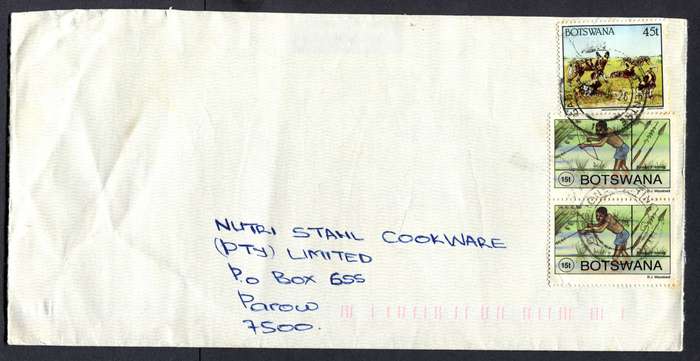 BOTSWANA 45t
15t BOTSWANA
15t BOTSWANA
NUTRI STAHL COOKWARE
(PTY) LIMITED
P.O BOX 655
Parow
7500.